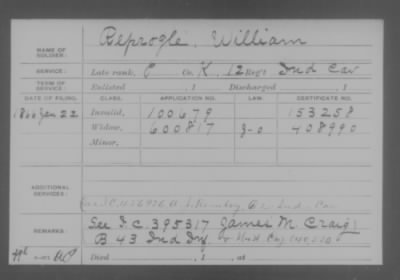 NAME OF SOLDIER: Reprogle, William
SERVICE: Late rank, C Co. K, 12 Reg't Ind Cav
TERM OF SERVICE: Enlisted , 1 Discharged , 1
DATE OF FILING. CLASS. APPLICATION NO. LAW. CERTIFICATE NO.
1866 Jan 22 Invalid, 100679 153258
Widow, 600817 408990
Minor,
ADDITIONAL SERVICES:
REMARKS: See I.C. 395317 James M. Craig
B 43 Ind Inf.
Died , 1 , at